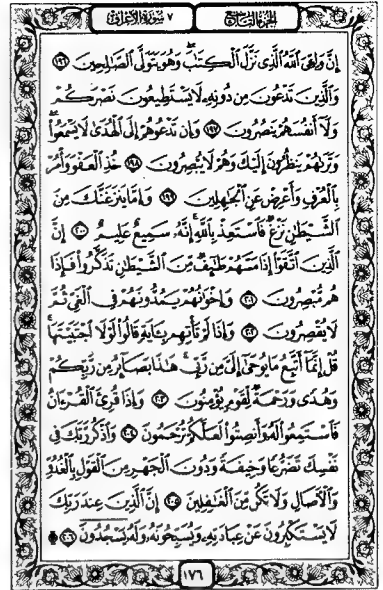 الجزء التاسع ٧ سورة الأعراف
إِنَّ وَلِـِّۧىَ ٱللَّهُ ٱلَّذِى نَزَّلَ ٱلۡكِتَٰبَۖ وَهُوَ يَتَوَلَّى ٱلصَّٰلِحِينَ ١٩٦
وَٱلَّذِينَ تَدۡعُونَ مِن دُونِهِۦ لَا يَسۡتَطِيعُونَ نَصۡرَكُمۡ
وَلَآ أَنفُسَهُمۡ يَنصُرُونَ ١٩٧ وَإِن تَدۡعُوهُمۡ إِلَى ٱلۡهُدَىٰ لَا يَسۡمَعُواْۖ
وَتَرَىٰهُمۡ يَنظُرُونَ إِلَيۡكَ وَهُمۡ لَا يُبۡصِرُونَ ١٩٨ خُذِ ٱلۡعَفۡوَ وَأۡمُرۡ
بِٱلۡعُرۡفِ وَأَعۡرِضۡ عَنِ ٱلۡجَٰهِلِينَ ١٩٩ وَإِمَّا يَنزَغَنَّكَ مِنَ
ٱلشَّيۡطَٰنِ نَزۡغٞ فَٱسۡتَعِذۡ بِٱللَّهِۚ إِنَّهُۥ سَمِيعٌ عَلِيمٌ ٢٠٠ إِنَّ
ٱلَّذِينَ ٱتَّقَوۡاْ إِذَا مَسَّهُمۡ طَٰٓئِفٞ مِّنَ ٱلشَّيۡطَٰنِ تَذَكَّرُواْ فَإِذَا
هُم مُّبۡصِرُونَ ٢٠١ وَإِخۡوَٰنُهُمۡ يَمُدُّونَهُمۡ فِى ٱلۡغَىِّ ثُمَّ
لَا يُقۡصِرُونَ ٢٠٢ وَإِذَا لَمۡ تَأۡتِهِم بِـَٔايَةٖ قَالُواْ لَوۡلَا ٱجۡتَبَيۡتَهَاۚ
قُلۡ إِنَّمَآ أَتَّبِعُ مَا يُوحَىٰٓ إِلَىَّ مِن رَّبِّىۚ هَٰذَا بَصَآئِرُ مِن رَّبِّكُمۡ
وَهُدٗى وَرَحۡمَةٞ لِّقَوۡمٖ يُؤۡمِنُونَ ٢٠٣ وَإِذَا قُرِئَ ٱلۡقُرۡءَانُ
فَٱسۡتَمِعُواْ لَهُۥ وَأَنصِتُواْ لَعَلَّكُمۡ تُرۡحَمُونَ ٢٠٤ وَٱذۡكُر رَّبَّكَ فِى
نَفۡسِكَ تَضَرُّعٗا وَخِيفَةٗ وَدُونَ ٱلۡجَهۡرِ مِنَ ٱلۡقَوۡلِ بِٱلۡغُدُوِّ
وَٱلۡأٓصَالِ وَلَا تَكُن مِّنَ ٱلۡغَٰفِلِينَ ٢٠٥ إِنَّ ٱلَّذِينَ عِندَ رَبِّكَ
لَا يَسۡتَكۡبِرُونَ عَنۡ عِبَادَتِهِۦ وَيُسَبِّحُونَهُۥ وَلَهُۥ يَسۡجُدُونَۤ ٢٠٦
١٧٦